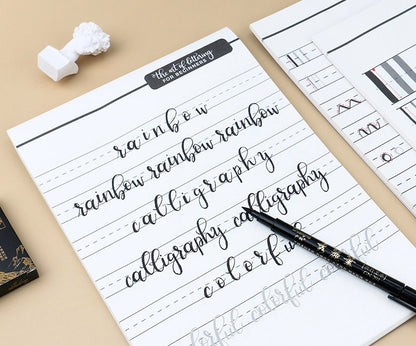 the art of lettering
FOR BEGINNERS
rainbow
rainbow rainbow rainbow
calligraphy
calligraphy calligraphy
colorful
colorful colorful colorful